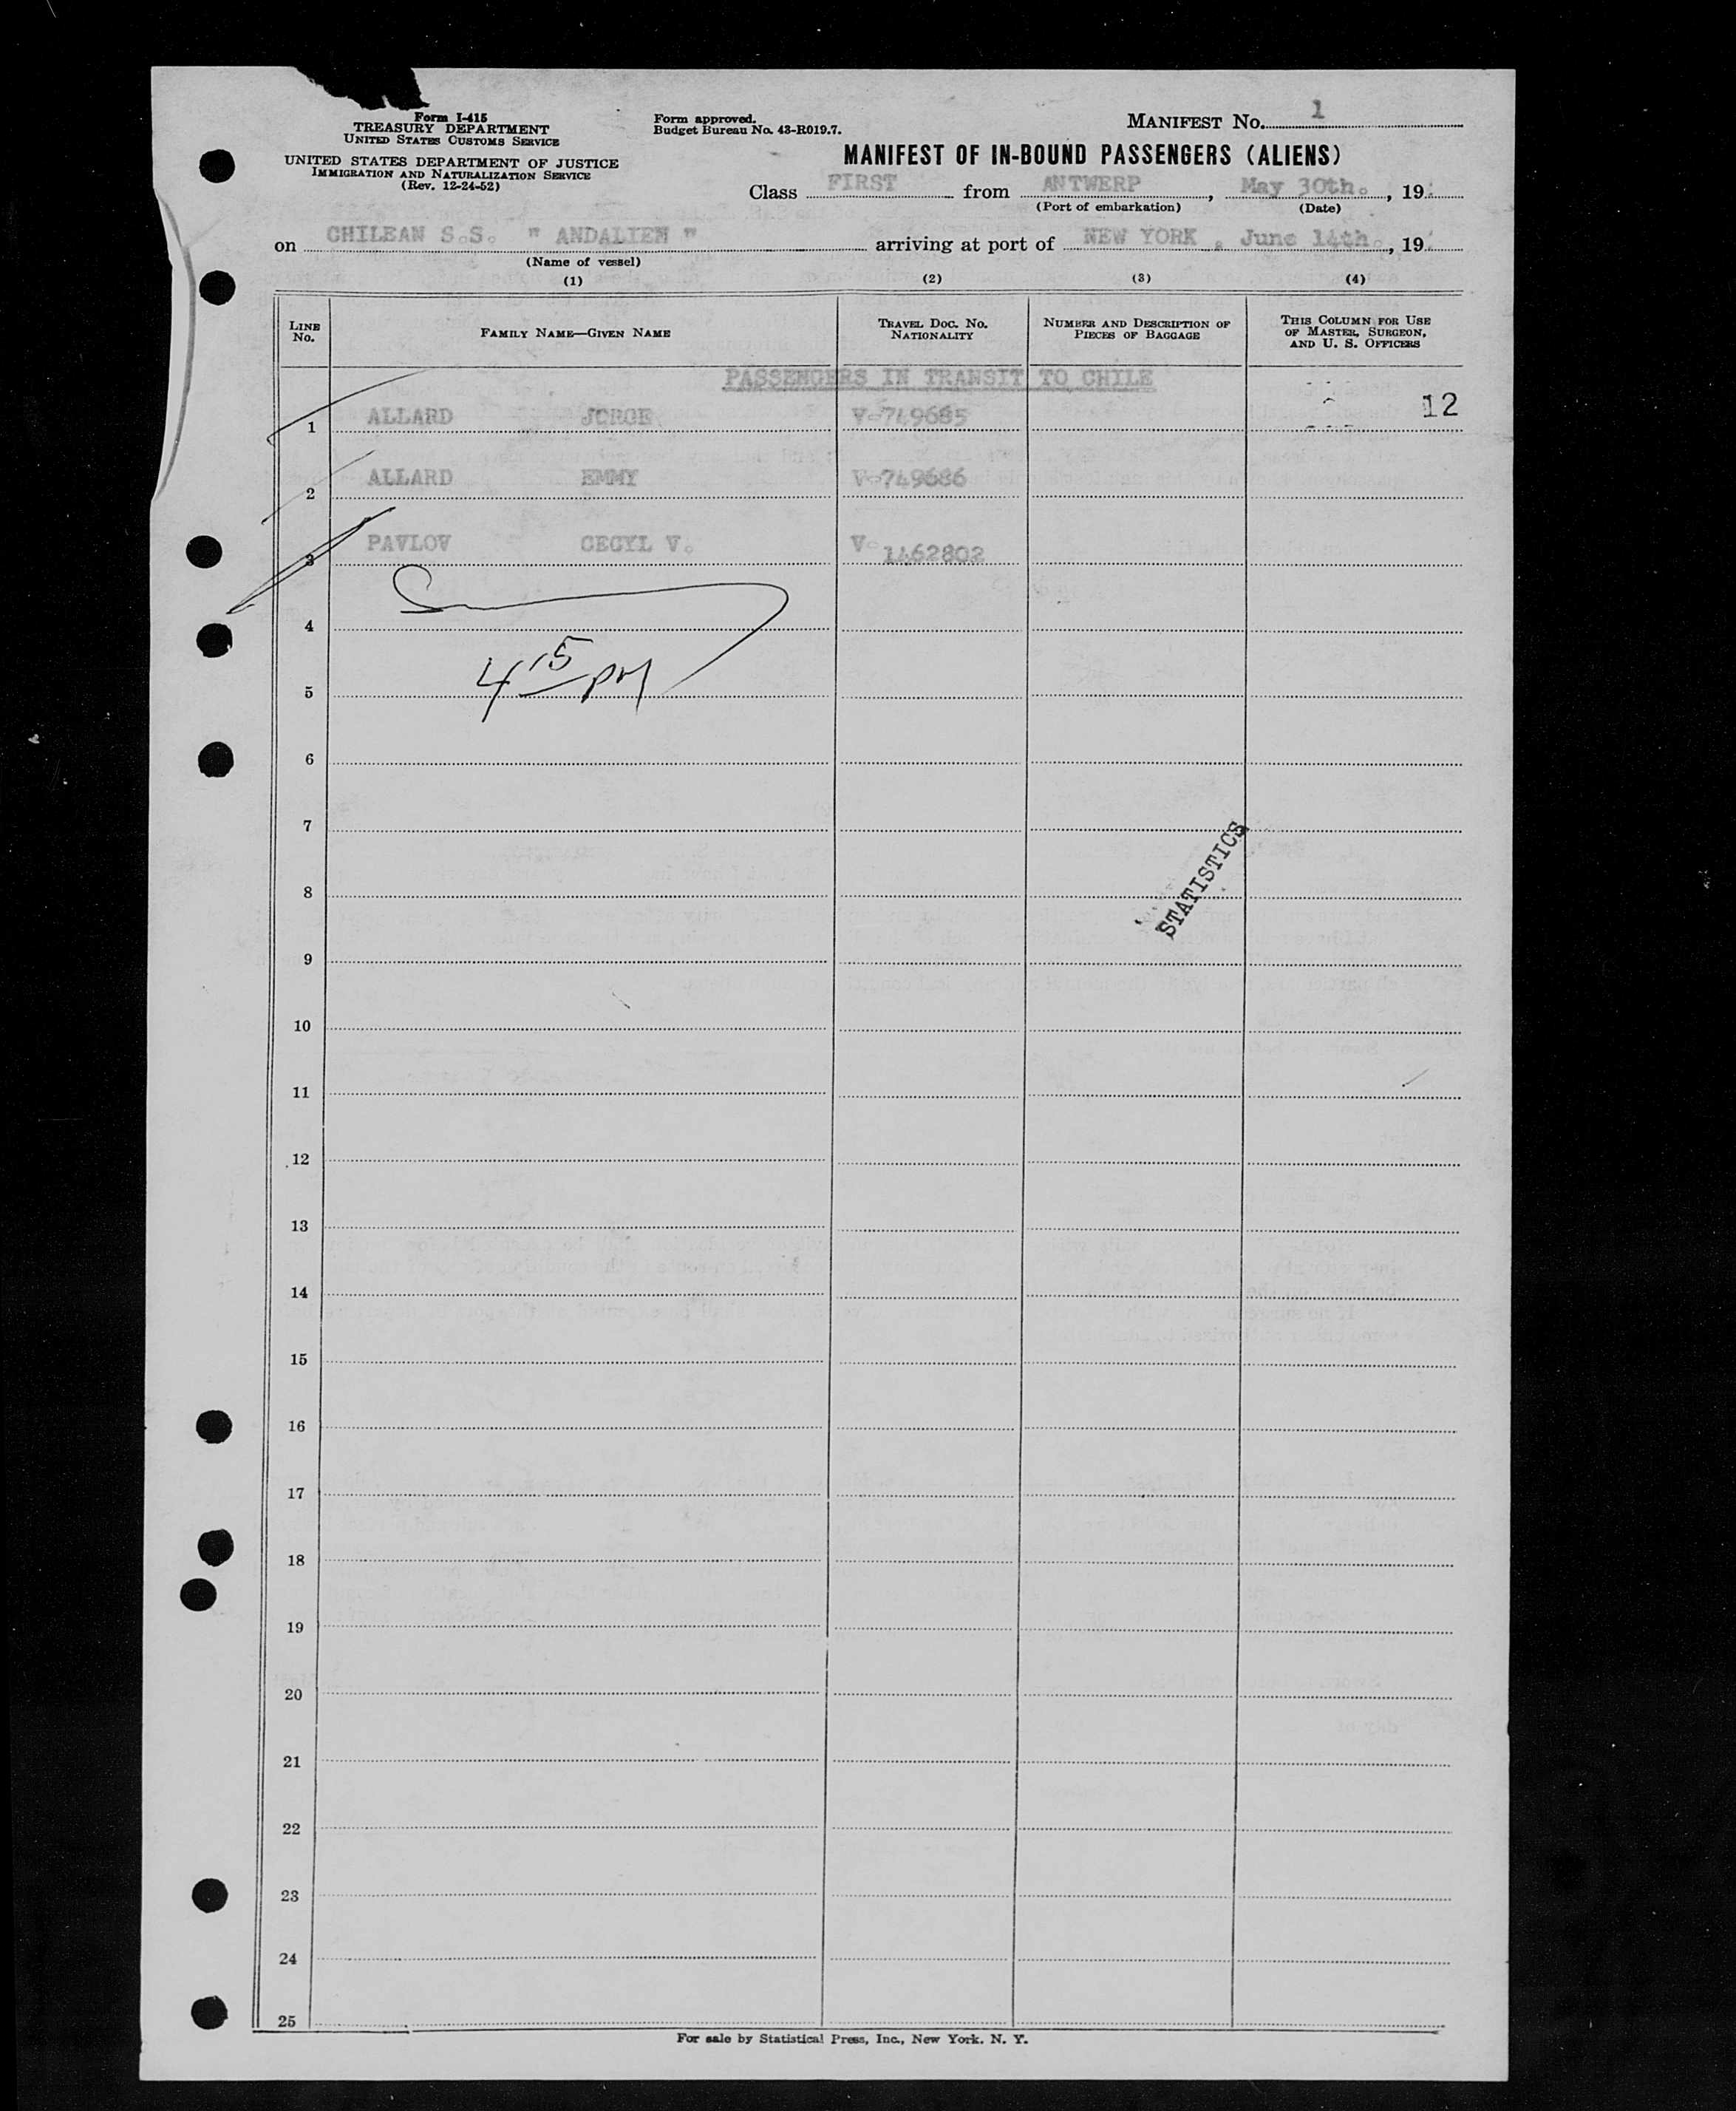 Form I-415
TREASURY DEPARTMENT
UNITED STATES CUSTOMS SERVICE
UNITED STATES DEPARTMENT OF JUSTICE
IMMIGRATION AND NATURALIZATION SERVICE
(Rev. 12-24-52)
Form approved.
Budget Bureau No. 43-R019.7.
MANIFEST NO. 1
MANIFEST OF IN-BOUND PASSENGERS (ALIENS)
Class FIRST from ANTWERP, May 30th., 19
(Port of embarkation) (Date)
on CHILEAN S.S. " ANDALIEN " arriving at port of NEW YORK, June 14th., 19
(Name of vessel)
(1) (2) (3) (4)
LINE NO. FAMILY NAME—GIVEN NAME TRAVEL DOC. NO. NATIONALITY NUMBER AND DESCRIPTION OF PIECES OF BAGGAGE THIS COLUMN FOR USE OF MASTER, SURGEON, AND U. S. OFFICERS
PASSENGERS IN TRANSIT TO CHILE
12
1 ALLARD JORGE V-749685
2 ALLARD EMMY V-749686
3 PAVLOV CECYL V. V-1462802
4
4 15 PM
5
6
7
STATISTICS
8
9
10
11
12
13
14
15
16
17
18
19
20
21
22
23
24
25
For sale by Statistical Press, Inc., New York, N. Y.